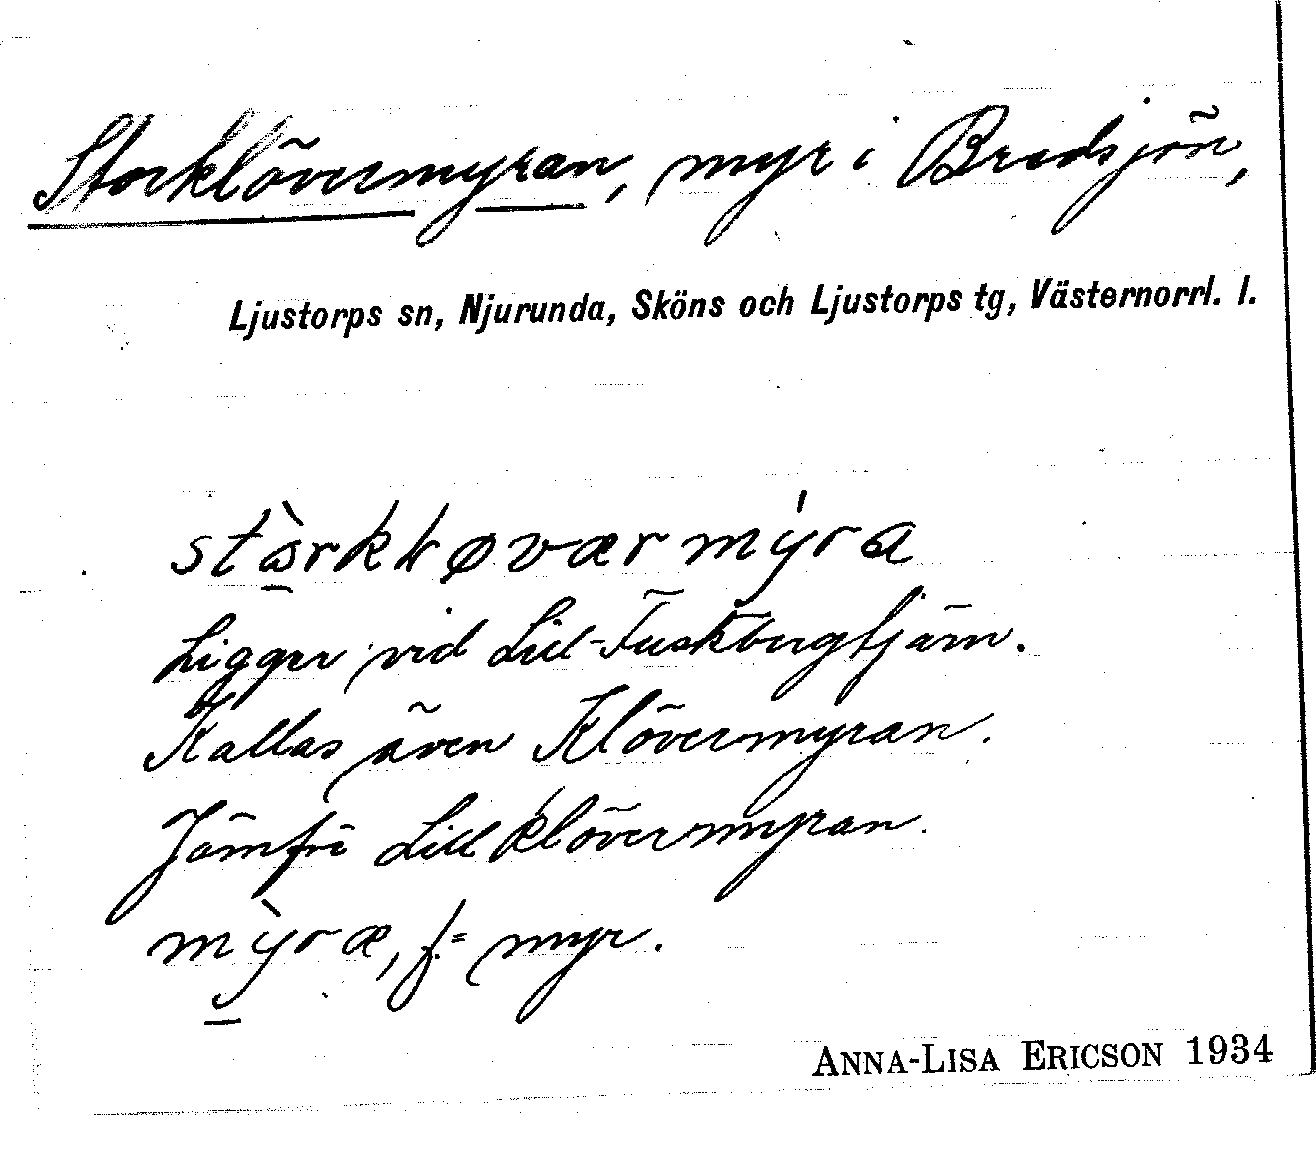 Storklövermyran, myr i Bredsjön,
Ljustorps sn, Njurunda, Sköns och Ljustorps tg, Västernorrl. l.
stàrkkløvær mýra
Ligger vid Lill-Fuskbergtjärn.
Kallas även Klövermyran.
Jämför Lillklövermyran.
mỳræ, f. = myr.
ANNA-LISA ERICSON 1934